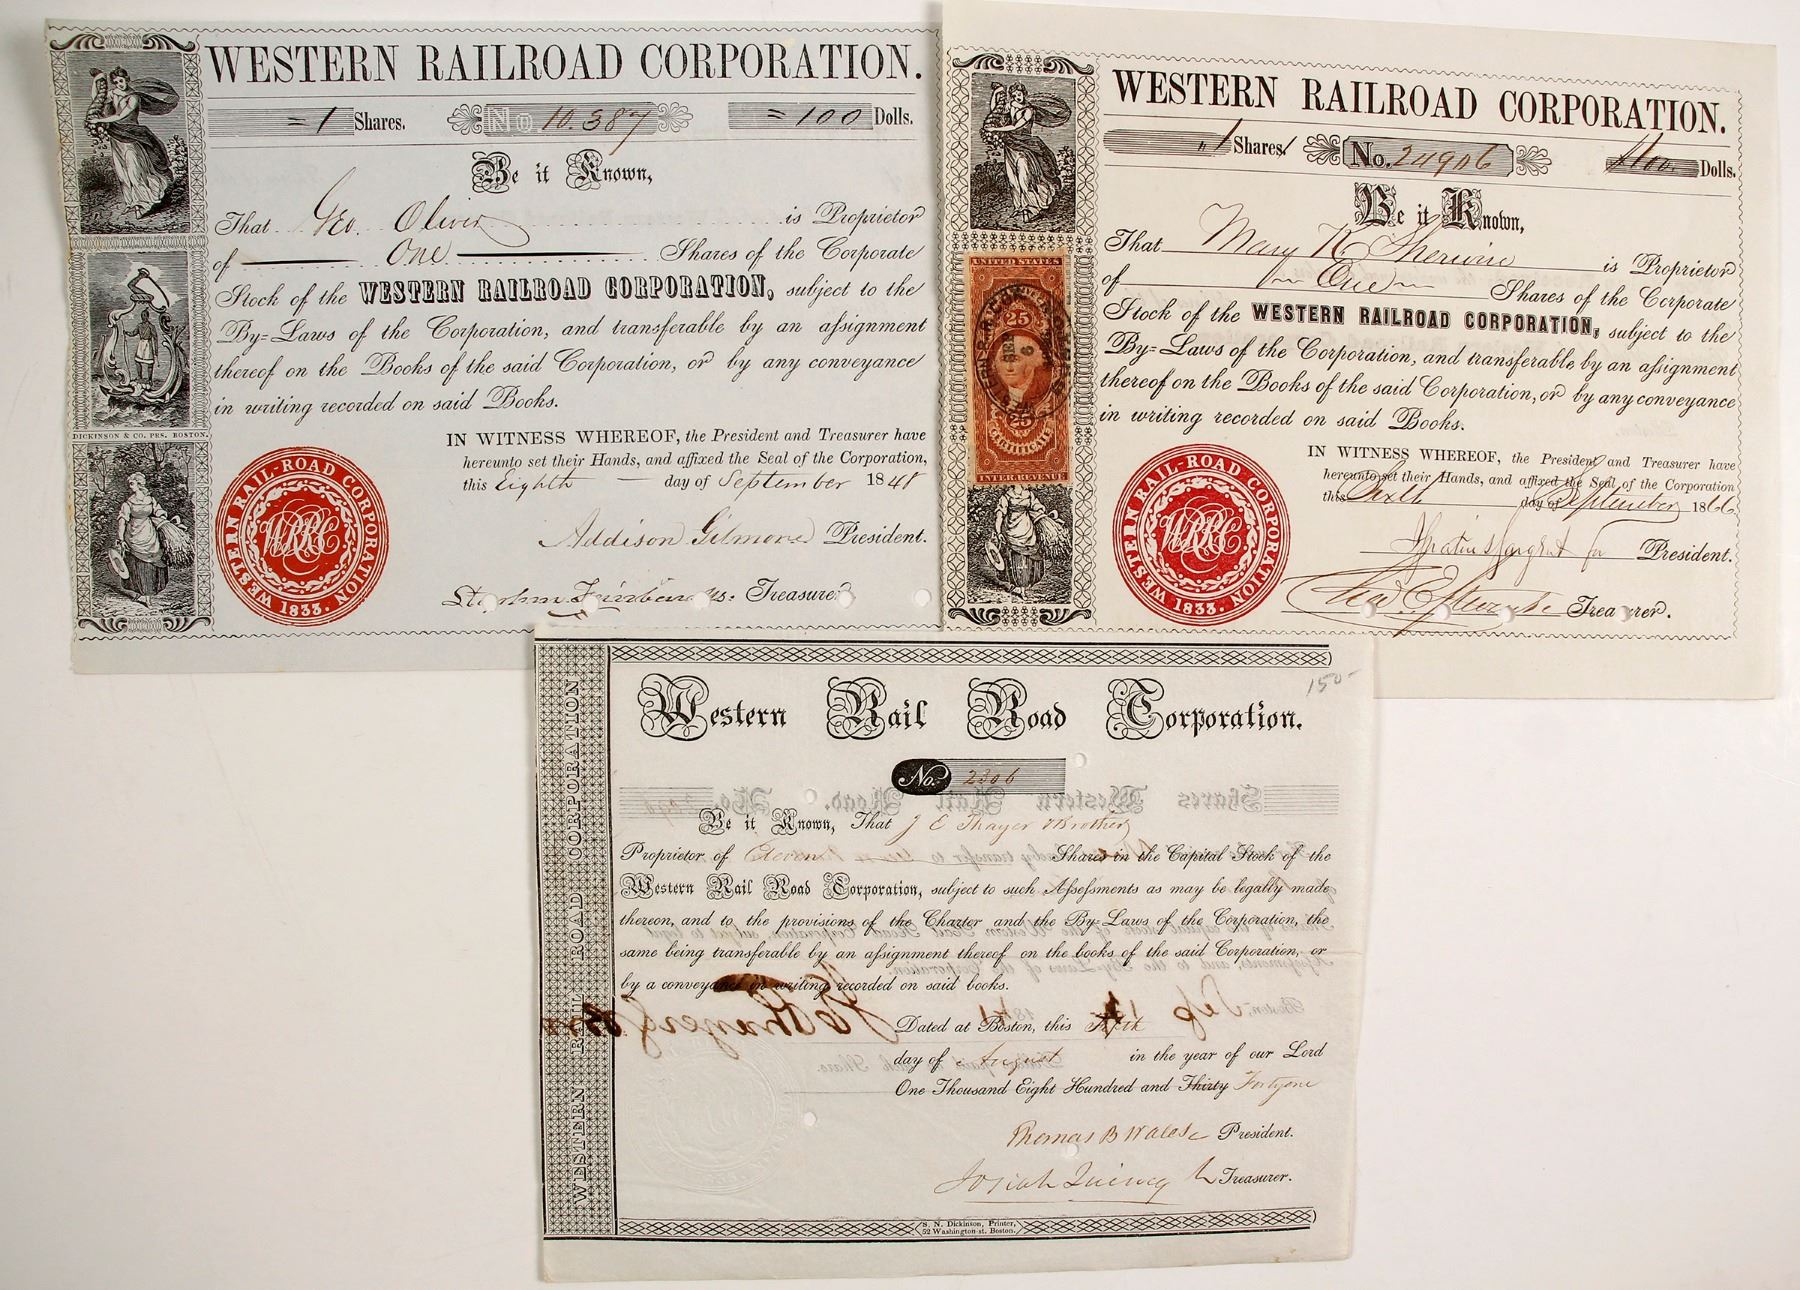 WESTERN RAILROAD CORPORATION.
= 1 Shares. No 10.387 = 100 Dolls.
Be it Known,
That Geo. Oliver is Proprietor
of One Shares of the Corporate
Stock of the WESTERN RAILROAD CORPORATION, subject to the
By-Laws of the Corporation, and transferable by an assignment
thereof on the Books of the said Corporation, or by any conveyance
in writing recorded on said Books.
DICKINSON & CO. PRS. BOSTON.
IN WITNESS WHEREOF, the President and Treasurer have
hereunto set their Hands, and affixed the Seal of the Corporation,
this Eighth day of September 184
Addison Gilmore President.
Treasurer
WESTERN RAIL-ROAD CORPORATION
WRRC
1833.
WESTERN RAILROAD CORPORATION.
1 Shares. No. 24906 $100. Dolls.
Be it Known,
That Mary K Sherwin is Proprietor
of One Shares of the Corporate
Stock of the WESTERN RAILROAD CORPORATION, subject to the
By-Laws of the Corporation, and transferable by an assignment
thereof on the Books of the said Corporation, or by any conveyance
in writing recorded on said Books.
UNITED STATES
25
25
CERTIFICATE
INTER. REVENUE
IN WITNESS WHEREOF, the President and Treasurer have
hereunto set their Hands, and affixed the Seal of the Corporation
this Sixth day of September 1866
Ignatius Sargent for President.
Treasurer.
WESTERN RAIL-ROAD CORPORATION
WRRC
1833.
WESTERN RAIL ROAD CORPORATION
150-
Western Rail Road Corporation.
No. 2306
Shares Western Rail Road. No.
Be it Known, That J E Thayer & Brother
Proprietor of Eleven Shares in the Capital Stock of the
Western Rail Road Corporation, subject to such Assessments as may be legally made
thereon, and to the provisions of the Charter and the By-Laws of the Corporation, the
same being transferable by an assignment thereof on the books of the said Corporation, or
by a conveyance in writing recorded on said books.
Dated at Boston, this
day of August in the year of our Lord
One Thousand Eight Hundred and Thirty Forty one
Thomas B Wales President.
Josiah Quincy Jr Treasurer.
S. N. Dickinson, Printer,
52 Washington-st. Boston.